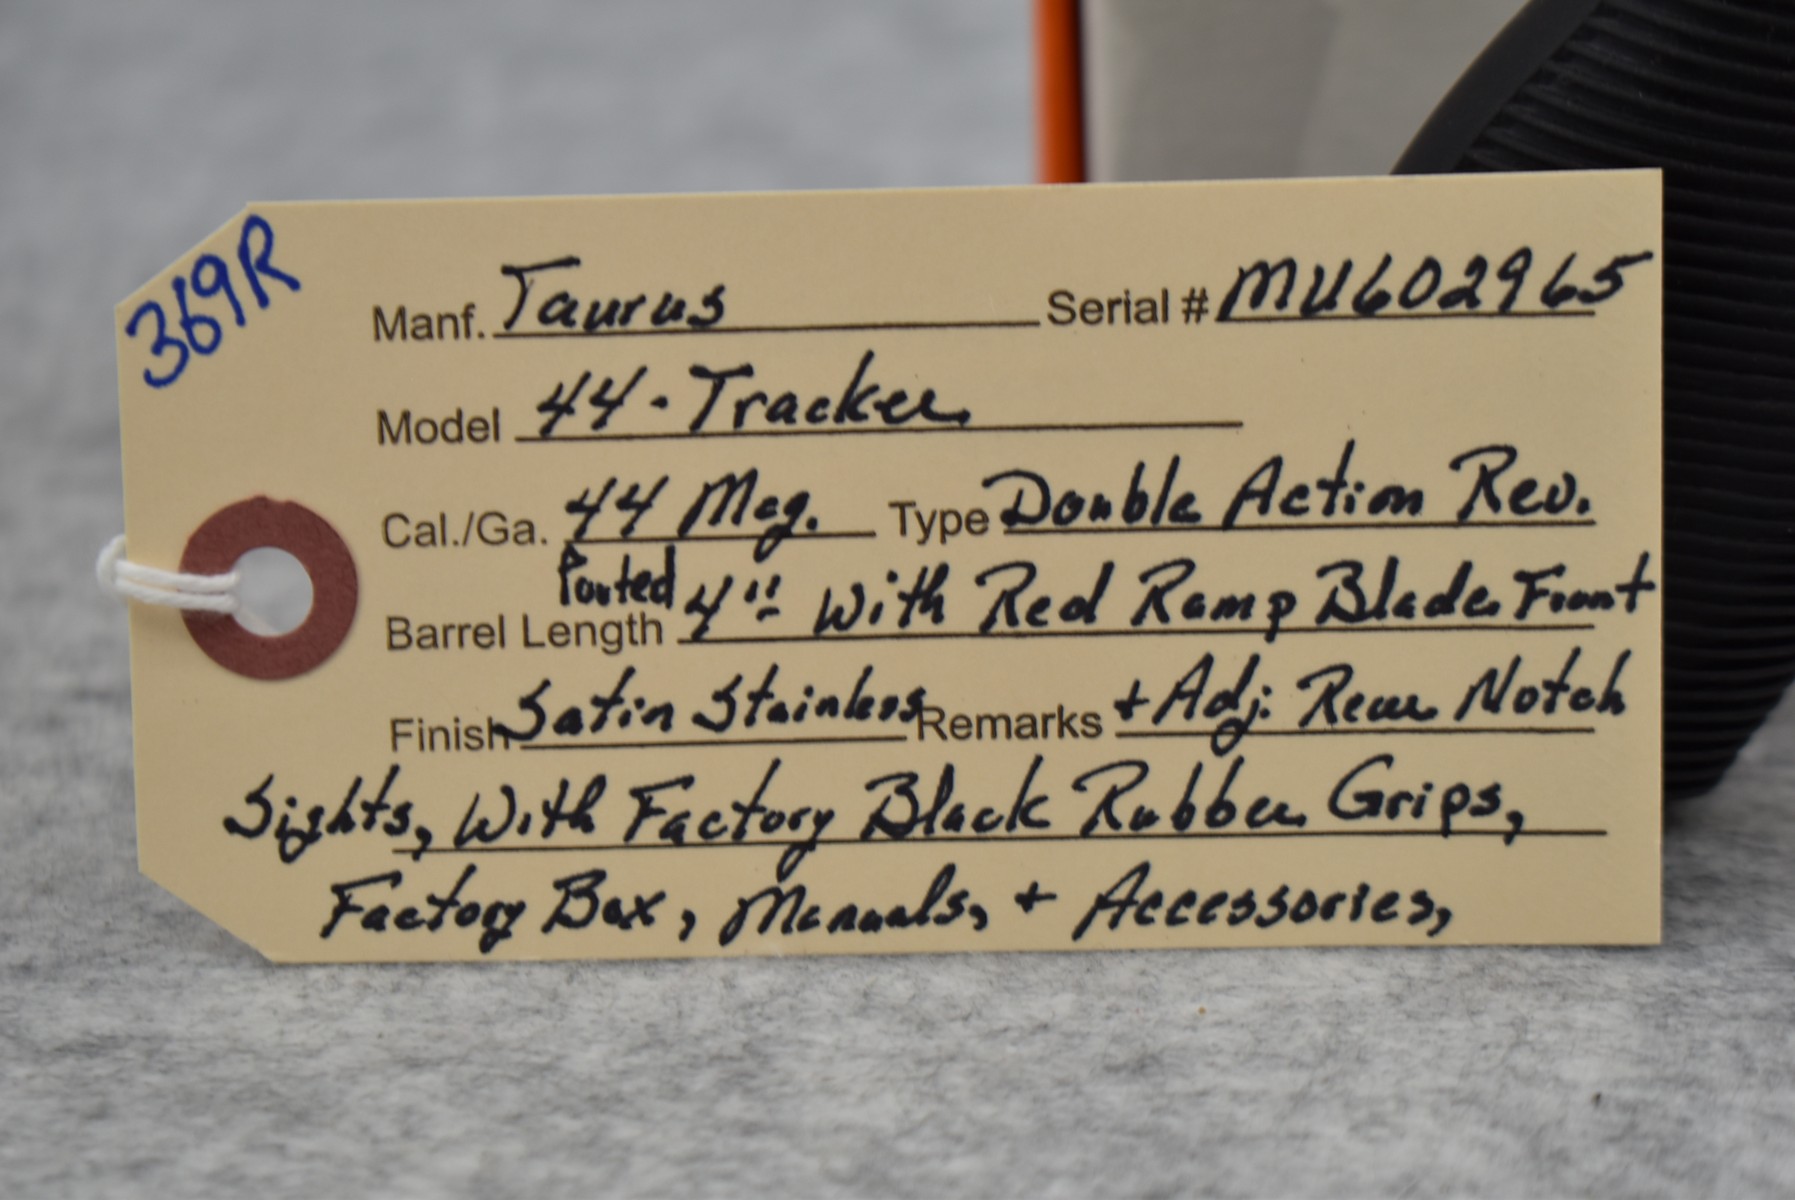 369R
Manf. Taurus Serial # MU602965
Model 44-Tracker
Cal./Ga. 44 Mag. Type Double Action Rev.
Barrel Length Ported 4" With Red Ramp Blade Front
Finish Satin Stainless Remarks + Adj. Rear Notch
Sights, With Factory Black Rubber Grips,
Factory Box, Manuals, + Accessories,